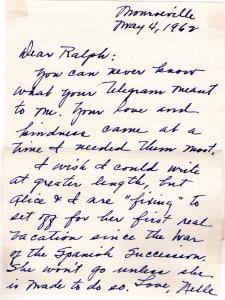 Monroeville
May 4, 1962
Dear Ralph:
You can never know
what your telegram meant
to me. Your love and
kindness came at a
time I needed them most.
I wish I could write
at greater length, but
Alice & I are "fixing" to
set off for her first real
vacation since the War
of the Spanish Succession.
She won't go unless she
is made to do so. Love, Nelle